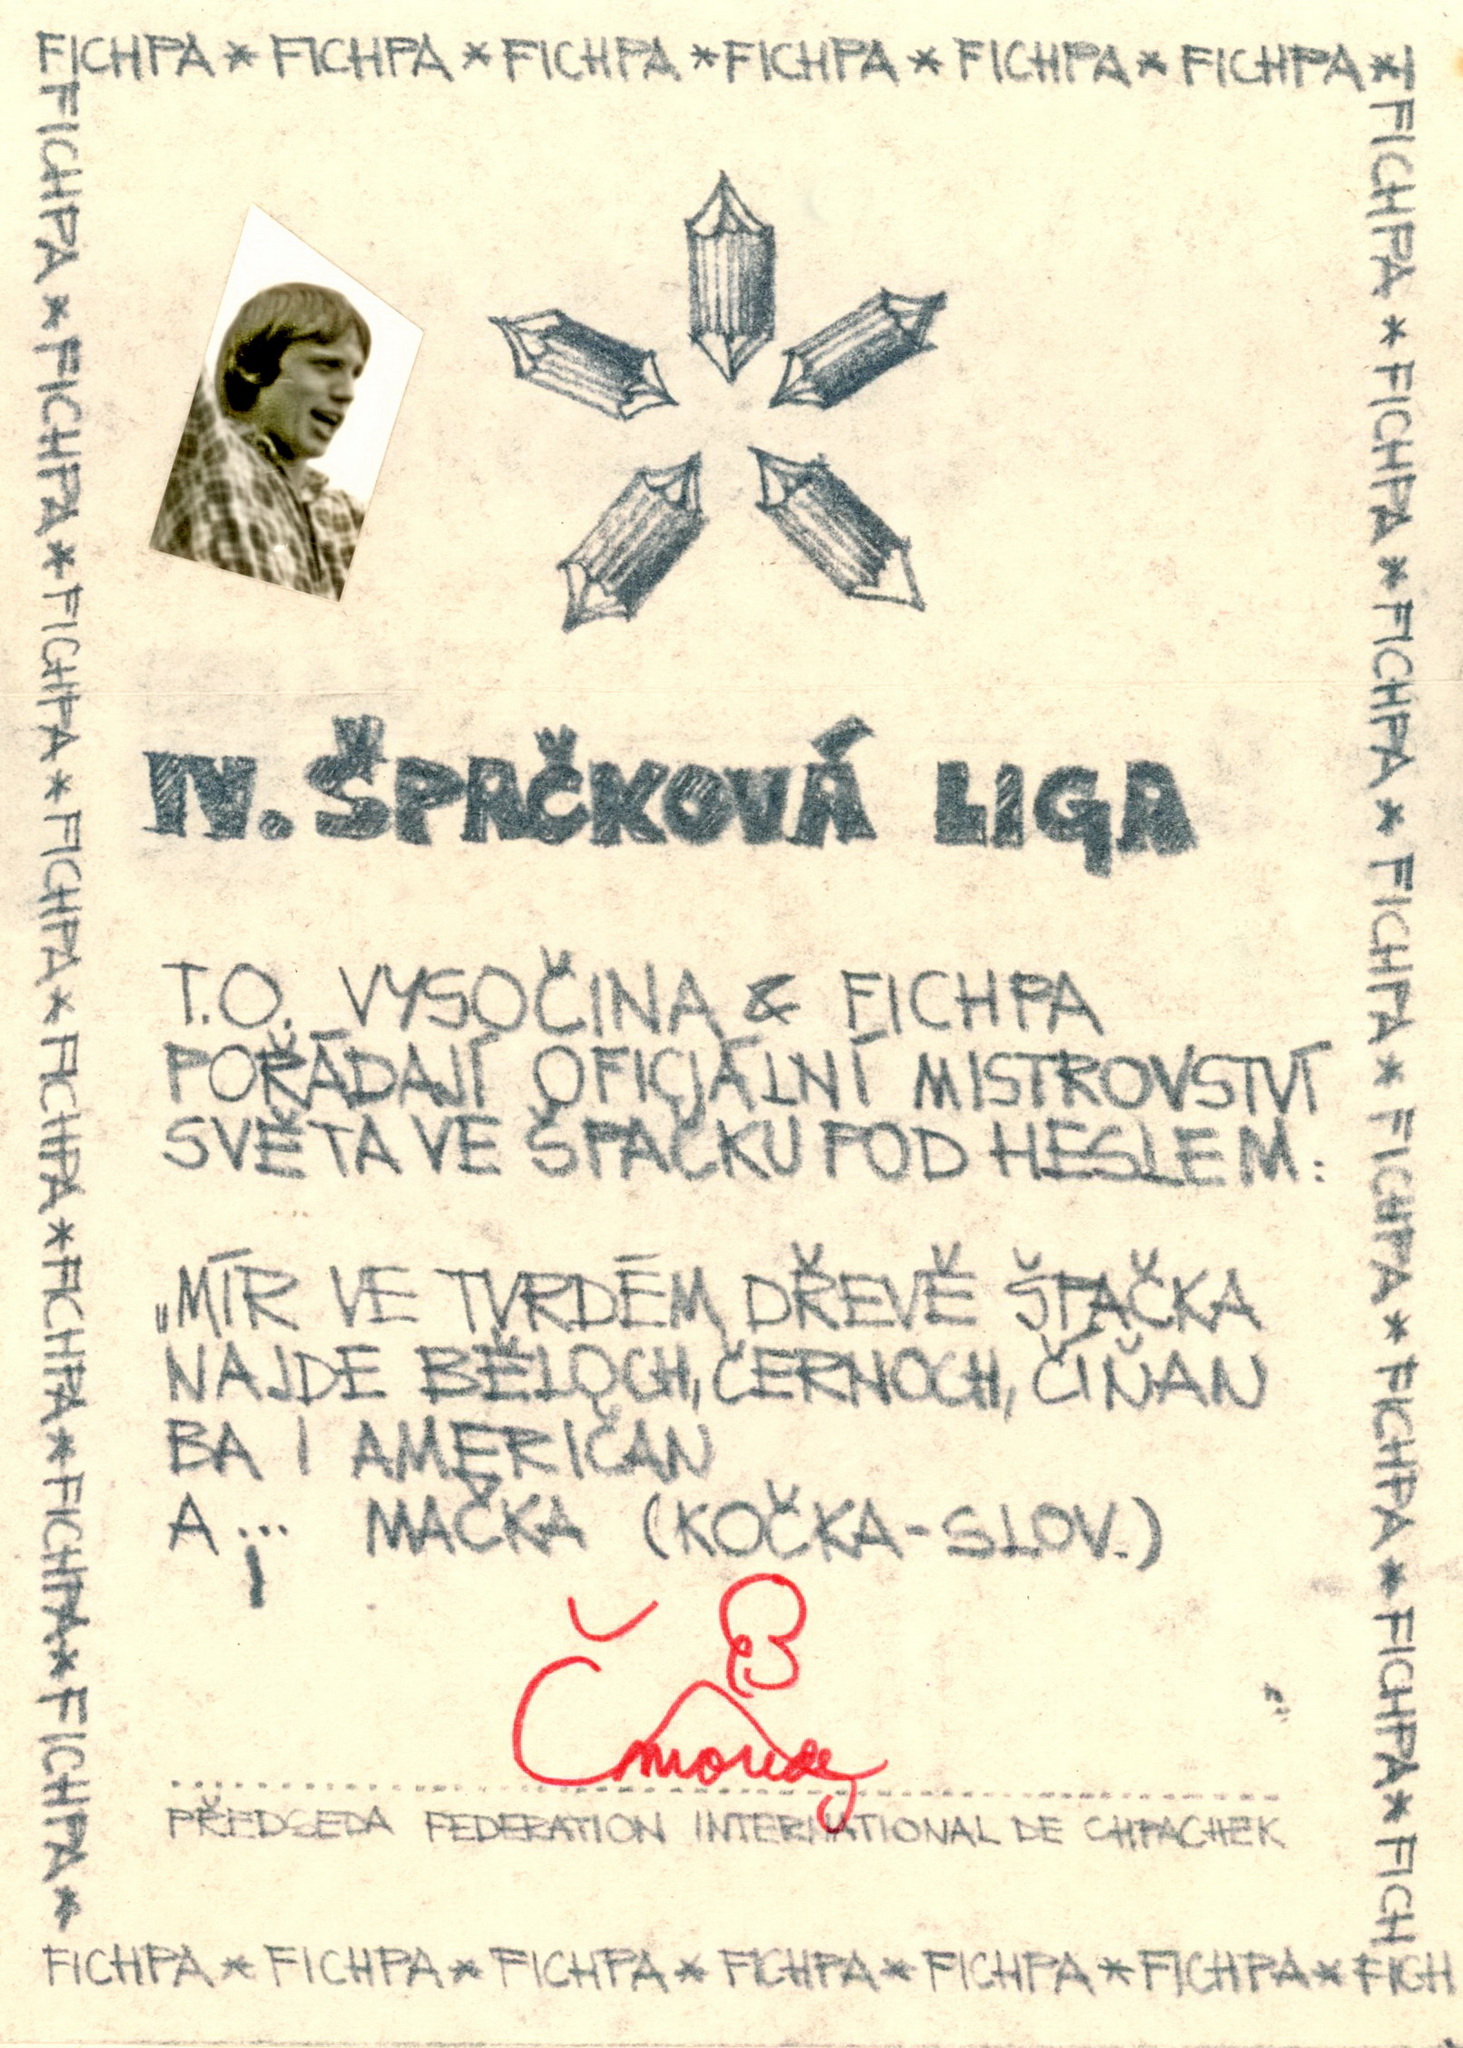 FICHPA * FICHPA * FICHPA * FICHPA * FICHPA * FICHPA *
FICHPA * FICHPA * FICHPA * FICHPA * FICHPA * FICHPA * FICHPA * FICHPA *
FICHPA * FICHPA * FICHPA * FICHPA * FICHPA * FICHPA * FICHPA * FICH
IV. ŠPAČKOVÁ LIGA
T.O. VYSOČINA & FICHPA
POŘÁDAJÍ OFICIÁLNÍ MISTROVSTVÍ
SVĚTA VE ŠPAČKU POD HESLEM:
„MÍR VE TVRDÉM DŘEVĚ ŠPAČKA
NAJDE BĚLOCH, ČERNOCH, ČÍŇAN
BA I AMERIČAN
A... MAČKA (KOČKA-SLOV.)
Čmoudy
PŘEDSEDA FEDERATION INTERNATIONAL DE CHPACHEK
FICHPA * FICHPA * FICHPA * FICHPA * FICHPA * FICHPA * FICH